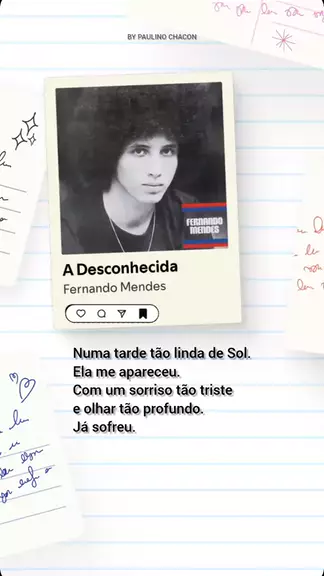 BY PAULINO CHACON
FERNANDO
MENDES
A Desconhecida
Fernando Mendes
Numa tarde tão linda de Sol.
Ela me apareceu.
Com um sorriso tão triste
e olhar tão profundo.
Já sofreu.